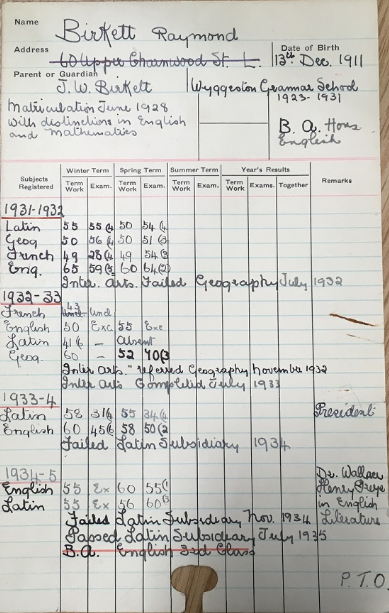 Name Birkett Raymond
Address 60 Upper Charnwood St. L. Date of Birth
12th Dec. 1911
Parent or Guardian
J. W. Birkett Wyggeston Grammar School
1923-1931
Matriculation June 1928
with distinctions in English
and Mathematics
B. A. Hons
English
Subjects Registered Winter Term Spring Term Summer Term Year's Results Remarks
Term Work Exam. Term Work Exam. Term Work Exam. Term Work Exam. Together
1931-1932
Latin 55 55 50 54
Geog 50 56 50 51
French 49 28 49 54
Eng. 65 59 60 64
Inter. Arts. Failed Geography July 1932
1932-33
French 43 Uncl
English 50 Exc 55 Exc
Latin 41 - Absent
Geog. 60 - 52 40
Inter Arts. "referred Geography November 1932
Inter Arts Completed July 1933
1933-4
Latin 58 31 55 34 President
English 60 45 58 50
Failed Latin Subsidiary 1934
1934-5
English 55 Ex 60 55
Latin 55 Ex 56 60
Dr. Wallace
Henry
in English
Literature
Failed Latin Subsidiary Nov. 1934
Passed Latin Subsidiary July 1935
B.A. English 3rd Class
P.T.O.